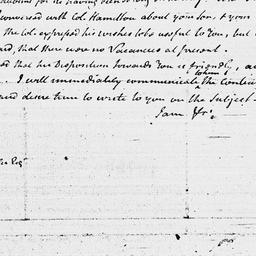 conversed with Col. Hamilton about your son, & your
the Col. expressed his wishes to be useful to You, but
said, that there were no Vacancies at present.
said that his disposition towards You is friendly, a
to him
I will immediately communicate the Contents
and desire him to write to you on the Subject.
I am &c.
Esqr.